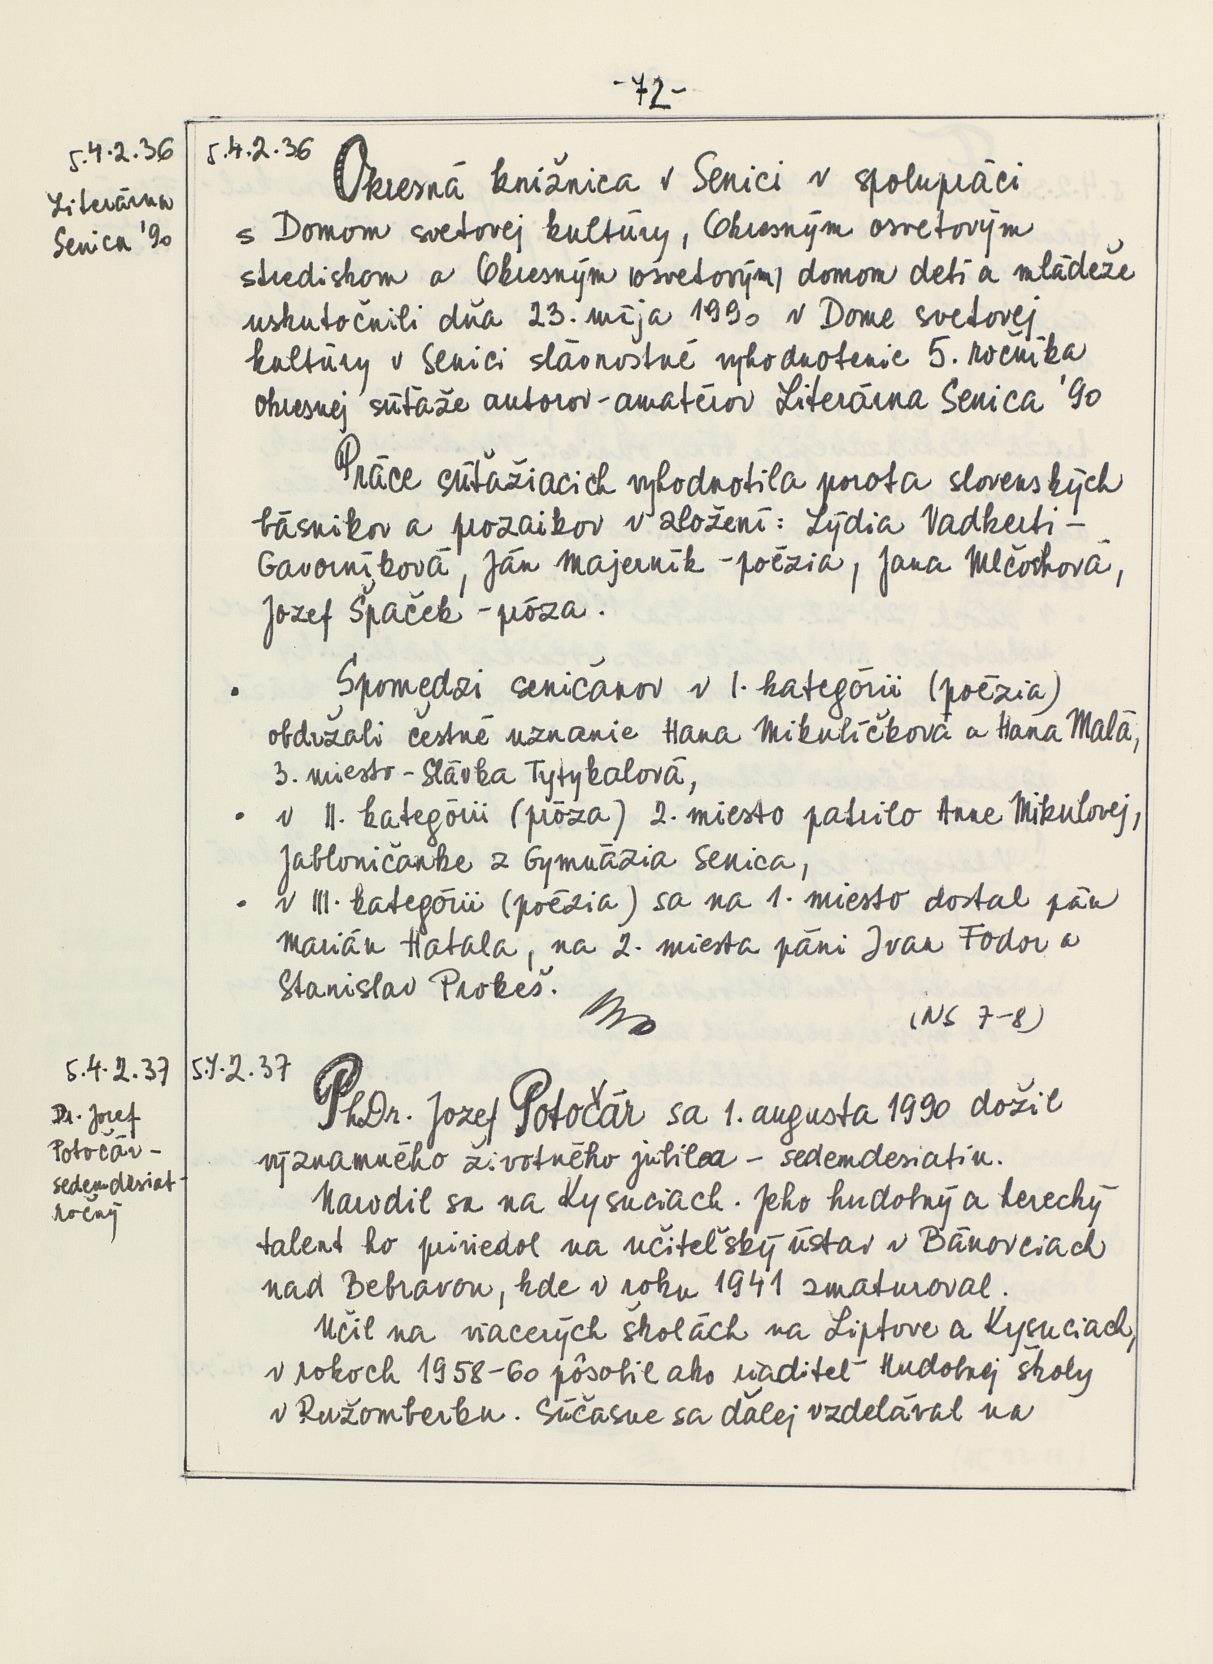 -72-
5.4.2.36
Literárna
Senica '90
5.4.2.36 Okresná knižnica v Senici v spolupráci
s Domom svetovej kultúry, Okresným osvetovým
strediskom a Okresným (osvetovým) domom detí a mládeže
uskutočnili dňa 23. mája 1990 v Dome svetovej
kultúry v Senici slávnostné vyhodnotenie 5. ročníka
okresnej súťaže autorov-amatérov Literárna Senica '90
Práce súťažiacich vyhodnotila porota slovenských
básnikov a prozaikov v zložení: Lýdia Vadkerti-
Gavorníková, Ján Majerník - poézia, Jana Mlčochová,
Jozef Špaček - próza.
• Spomedzi seničanov v I. kategórii (poézia)
obdržali čestné uznanie Hana Mikulíčková a Hana Malá,
3. miesto - Slávka Tytykalová,
• v II. kategórii (próza) 2. miesto patrilo Anne Mikulovej,
Jabloničanke z Gymnázia Senica,
• v III. kategórii (poézia) sa na 1. miesto dostal pán
Marián Hatala, na 2. miesta páni Ivan Fodor a
Stanislav Prokeš.
(NS 7-8)
5.4.2.37
Dr. Jozef
Potočár -
sedemdesiat-
ročný
5.4.2.37 PhDr. Jozef Potočár sa 1. augusta 1990 dožil
významného životného jubilea - sedemdesiatin.
Narodil sa na Kysuciach. Jeho hudobný a herecký
talent ho priviedol na učiteľský ústav v Bánovciach
nad Bebravou, kde v roku 1941 zmaturoval.
Učil na viacerých školách na Liptove a Kysuciach,
v rokoch 1958-60 pôsobil ako riaditeľ Hudobnej školy
v Ružomberku. Súčasne sa ďalej vzdelával na